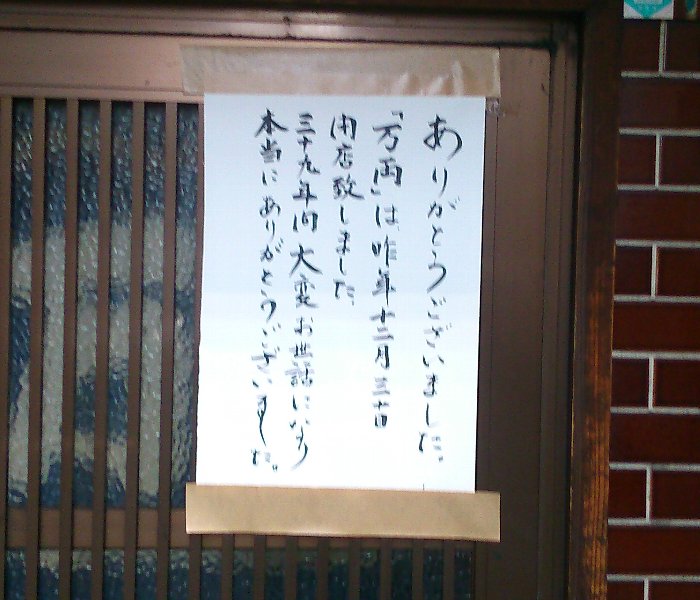 ありがとうございました。
「万両」は、昨年十二月三十日
閉店致しました。
三十九年間大変お世話になり
本当にありがとうございました。